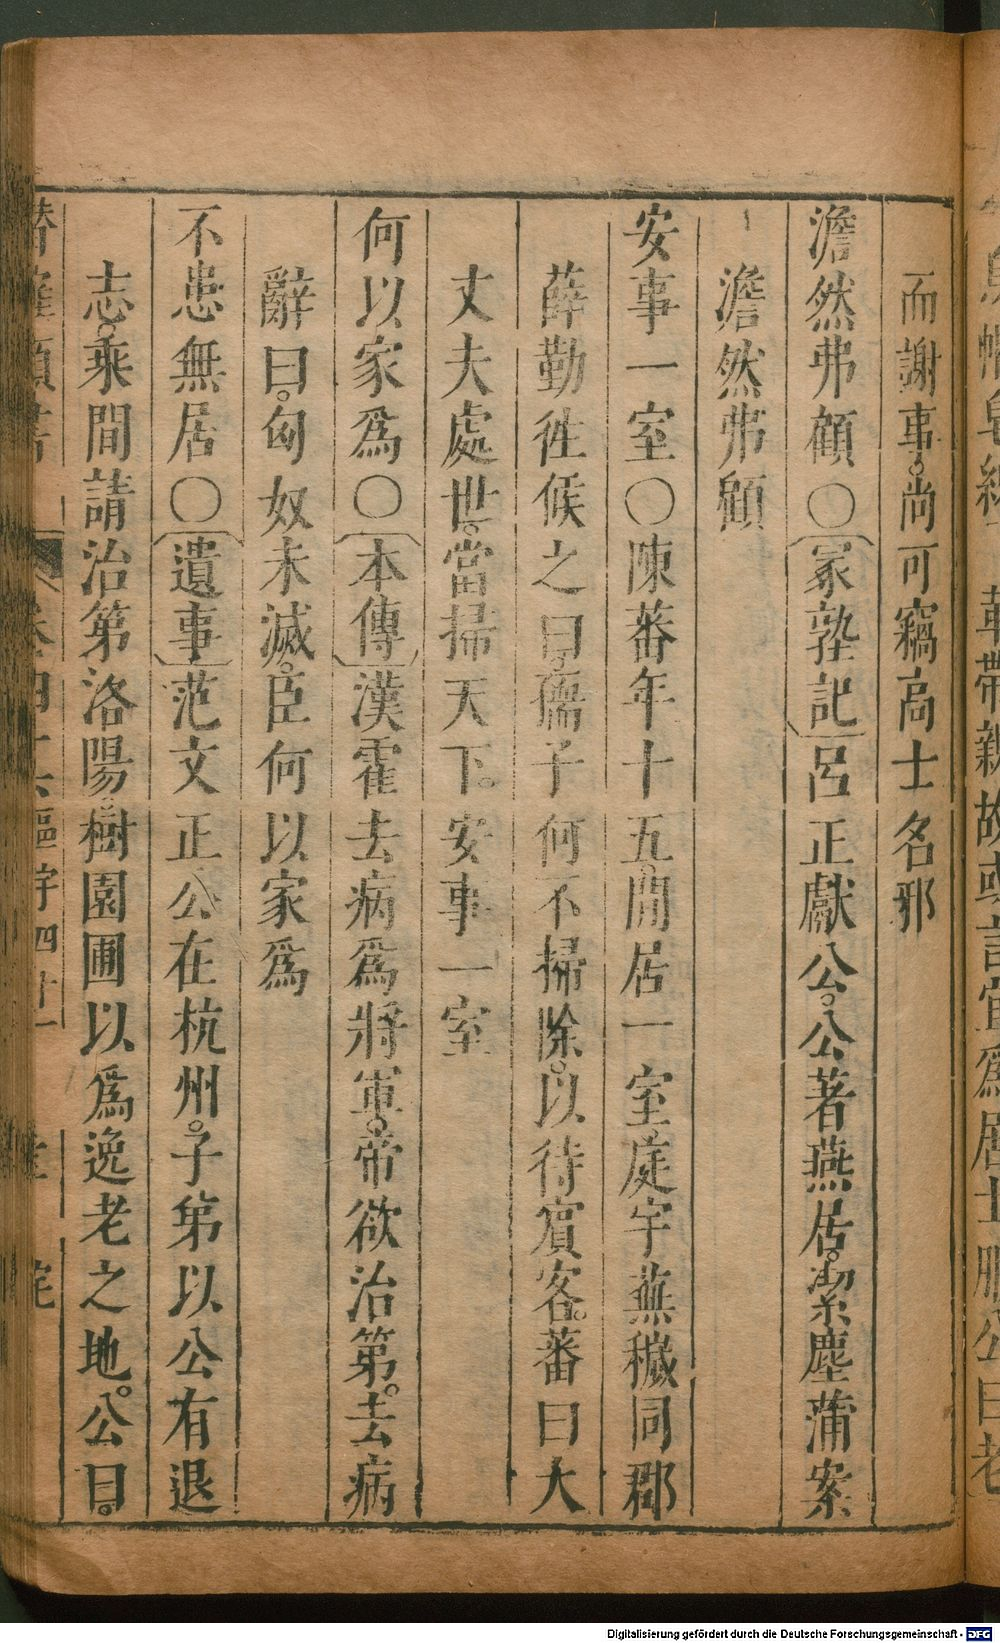 而謝事尚可竊高士名邪
澹然弗顧○〔冢塾記〕呂正獻公公著燕居潔塵蒲案
澹然弗顧
安事一室○陳蕃年十五閒居一室庭宇蕪穢同郡
薛勤徃候之曰孺子何不掃除以待賓客蕃曰大
丈夫處世當掃天下安事一室
何以家爲○〔本傳〕漢霍去病爲將軍帝欲治第去病
辭曰匈奴未滅臣何以家爲
不患無居○〔遺事〕范文正公在杭州子第以公有退
志乘間請治第洛陽樹園圃以爲逸老之地公曰
Digitalisierung gefördert durch die Deutsche Forschungsgemeinschaft - DFG